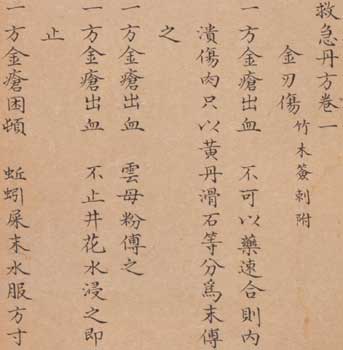 救急丹方卷一
金刃傷 竹木簽刺附
一方金瘡出血 不可以藥速合則內
潰傷肉只以黃丹滑石等分爲末傅
之
一方金瘡出血 雲母粉傅之
一方金瘡出血 不止井花水浸之即
止
一方金瘡困頓 蚯蚓屎末水服方寸